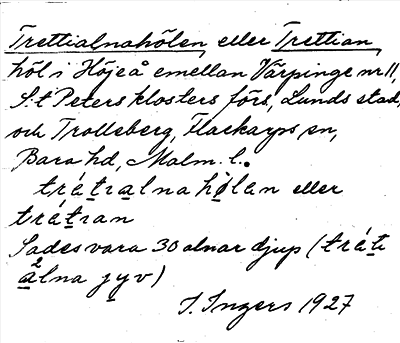 Trettialnahölen eller Trettian,
höl i Höjeå emellan Värpinge nr 11,
S:t Peters klosters förs, Lunds stad,
och Trolleberg, Flackarps sn,
Bara hd, Malm. l.
trátialnahòlan eller
trátian
Sades vara 30 alnar djup (tráti
²alna jyv)
I. Ingers 1927